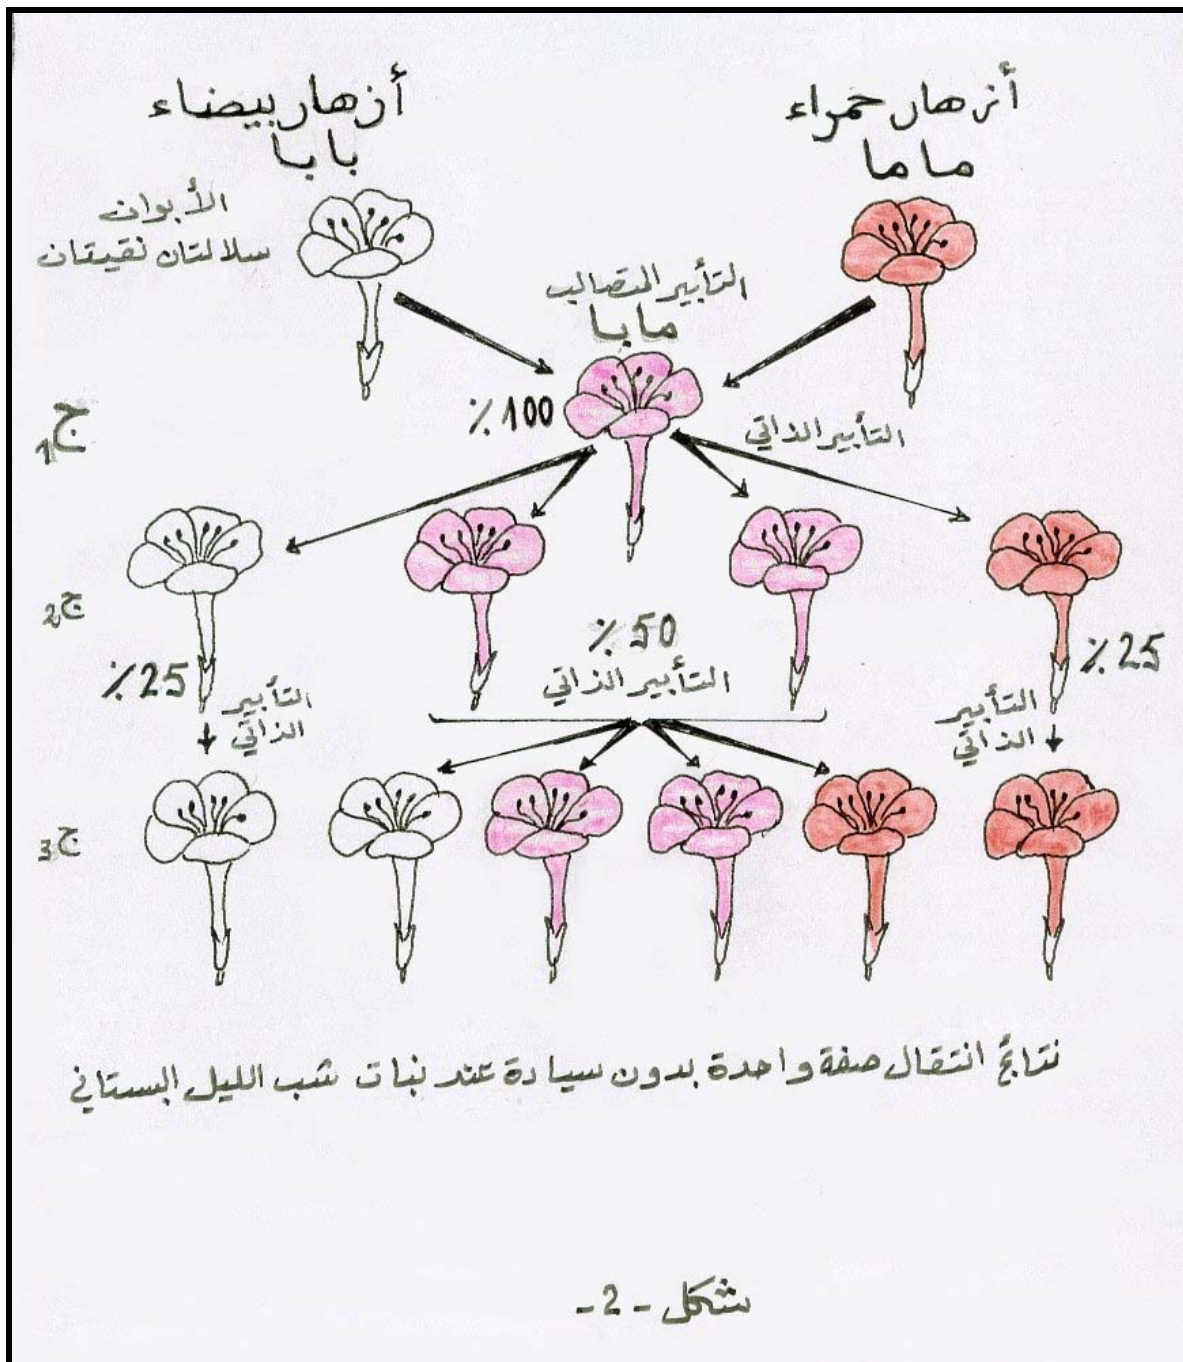 أزهار حمراء
ما ما
أزهار بيضاء
با با
الأبوان
سلالتان نقيتان
التأبير المتصالب
ما با
% 100
ج1
التأبير الذاتي
ج2
% 25
% 50
% 25
التأبير الذاتي
التأبير
الذاتي
التأبير
الذاتي
ج3
نتائج انتقال صفة واحدة بدون سيادة عند نبات شب الليل البستاني
شكل - 2 -